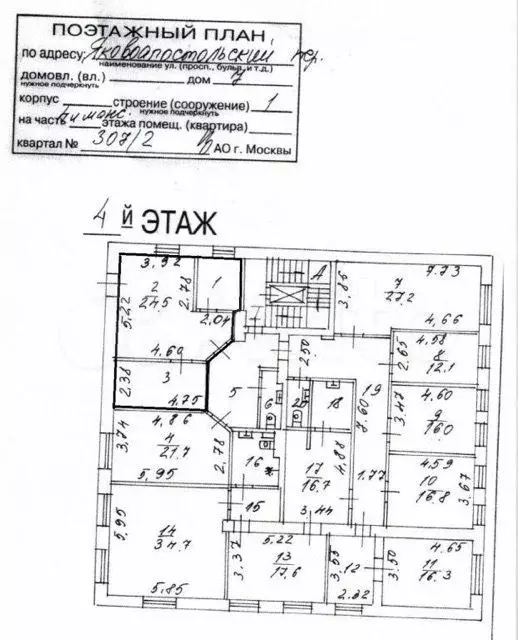 ПОЭТАЖНЫЙ ПЛАН
по адресу: Яковоапостольский пер.
наименование ул. (просп., бульв. и т.д.)
домовл. (вл.) дом 7
нужное подчеркнуть
корпус строение (сооружение) 1
нужное подчеркнуть
на часть этажа помещ. (квартира)
квартал № 307/2 АО г. Москвы
4 й ЭТАЖ
3,92 1 А 7 7.73
2 2,78 3,86 27.2
24.5
5,22 2,04 4,66
4,69 2,50 2,65 4,58
8
12.1
2,38 3 5 19
4,75 6 20 18 7.60 3,47 4,60
9
16.0
3,74 4,86
4 2,78
21.7
5,95 16 17 4,88 4,59
16.7 1,77 10 3,67
16.8
15 3,44
5,95 14 5,22
34.7 3,37 13 3,55 12 3,50 4,65
17,6 11
16.3
5,85 2,22